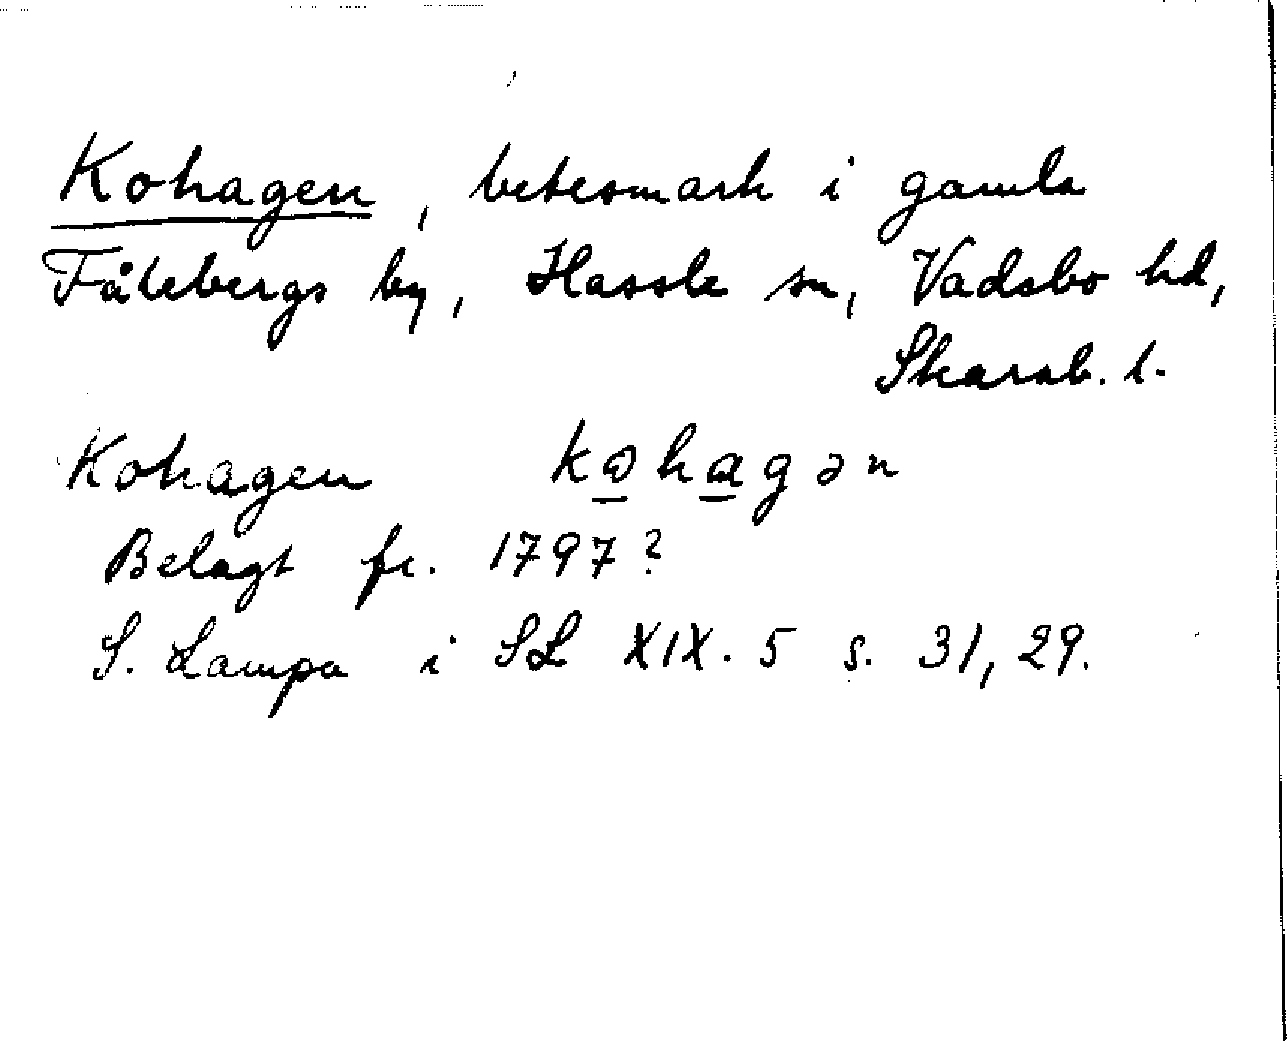 Kohagen, betesmark i gamla
Fålebergs by, Hassle sn, Vadsbo hd,
Skarab. l.
Kohagen kohagən
Belagt fr. 1797?
S. Lampa i SL XIX. 5 s. 31, 29.